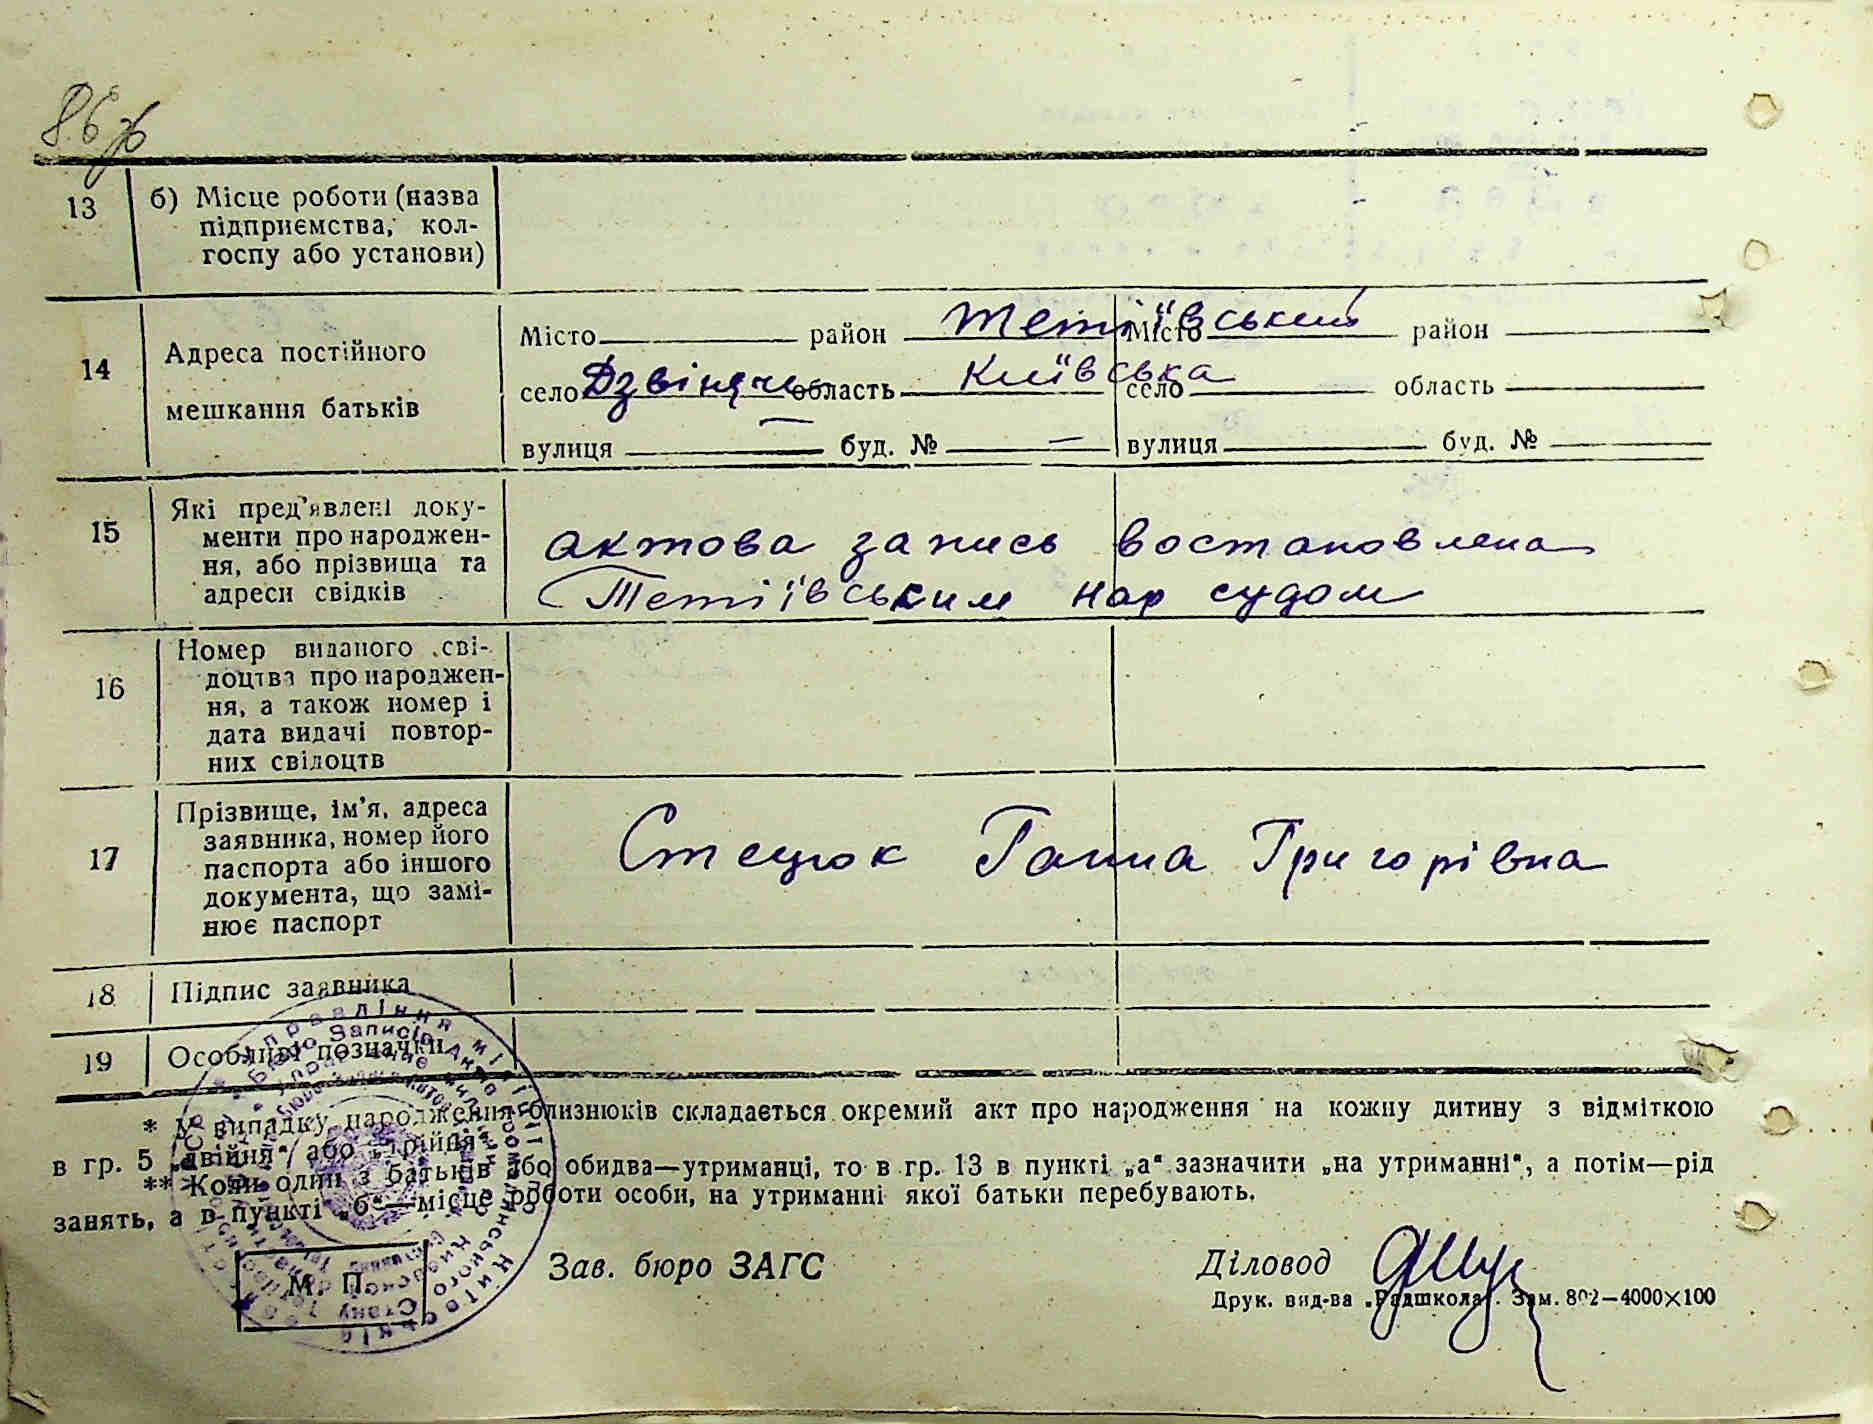 86
13
б) Місце роботи (назва
підприємства, кол-
госпу або установи)
14
Адреса постійного
мешкання батьків
Місто район Тетіївський
село Дзвіняче область Київська
вулиця — буд. № —
Місто район
село область
вулиця буд. №
15
Які пред'явлені доку-
менти про народжен-
ня, або прізвища та
адреси свідків
актова запись востановлена
Тетіївським нар судом
16
Номер виданого сві-
доцтва про народжен-
ня, а також номер і
дата видачі повтор-
них свідоцтв
17
Прізвище, ім'я, адреса
заявника, номер його
паспорта або іншого
документа, що замі-
нює паспорт
Стецюк Ганна Григорівна
18
Підпис заявника
19
Особливі позначки
* У випадку народження близнюків складається окремий акт про народження на кожну дитину з відміткою
в гр. 5 „двійня“ або „трійня“.
** Коли один з батьків або обидва—утриманці, то в гр. 13 в пункті „а“ зазначити „на утриманні“, а потім—рід
занять, а в пункті „б“—місце роботи особи, на утриманні якої батьки перебувають.
М. П.
Зав. бюро ЗАГС
Діловод
Друк. вид-ва „Радшкола“. Зам. 802—4000×100